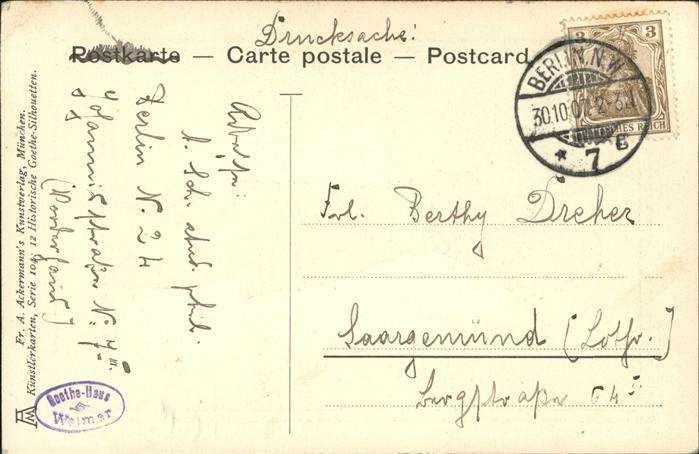 Drucksache!
Postkarte — Carte postale — Postcard
3 3
BERLIN, N.W.
30.10.07. 2-3N
* 7 E
DEUTSCHES REICH
Frl. Berthy Dreher
Saargemünd (Lothr.)
Bergstraße 64 I
stud. phil.
Berlin N. 24
Johannisstraße N. 7 III.
(Vorderhaus)
Fr. A. Ackermann's Kunstverlag, München.
Künstlerkarten, Serie 104: 12 Historische Goethe-Silhouetten.
Goethe-Haus
Weimar